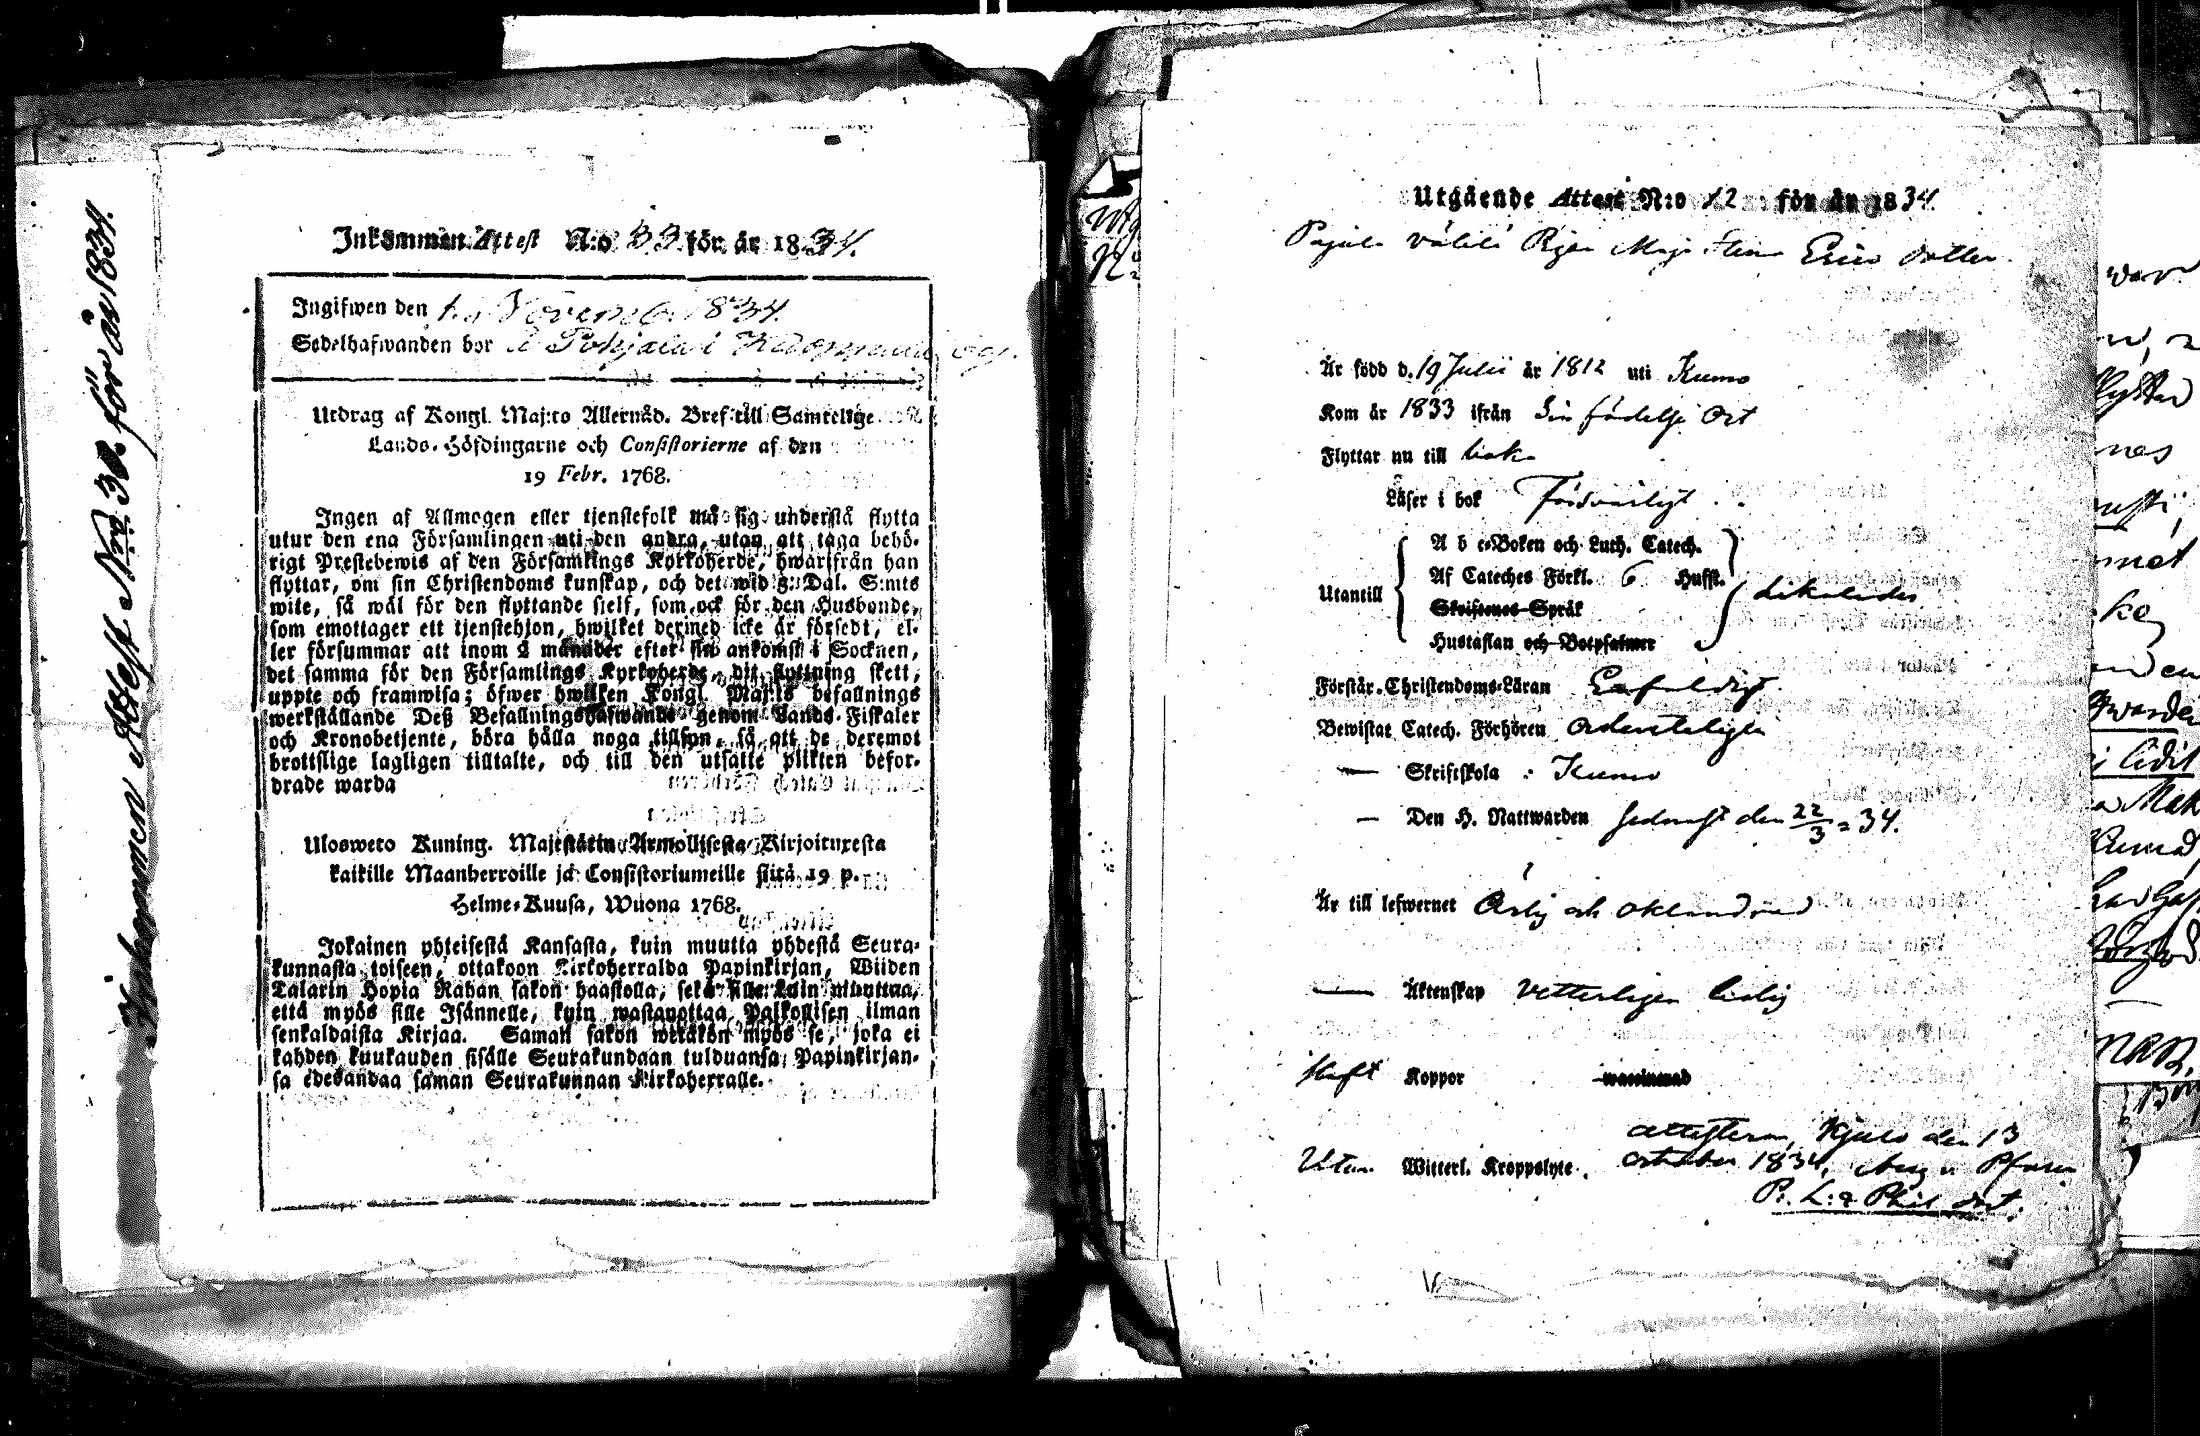 Inkommen Attest Nro 30. för år 1834.
Inkommen Attest N:o 33 för år 1834.
Ingifwen den 1. Novemb. 1834.
Sedelhafwanden bor å Pohjala i
Utdrag af Kongl. Maj:ts Allernåd. Bref till Samtelige
Lands-Höfdingarne och Consistorierne af den
19 Febr. 1768.
Ingen af Allmogen eller tjenstefolk må sig understå flytta
utur den ena Församlingen uti den andra, utan att taga behö-
rigt Prestebewis af den Församlings Kyrkoherde, hwarifrån han
flyttar, om sin Christendoms kunskap, och det wid 5: Dal. S:mts
wite, så wäl för den flyttande sielf, som ock för den Husbonde,
som emottager ett tjenstehjon, hwilket dermed icke är försedt, el-
ler försummar att inom 2 månader efter sin ankomst i Socknen,
det samma för den Församlings Kyrkoherde, dit flyttning skett,
uppte och framwisa; öfwer hwilken Kongl. Maj:ts befallnings
werkställande Deß Befallningshafwande genom Lands-Fiskaler
och Kronobetjente, böra hålla noga tillsyn, så att de deremot
brottslige lagligen tilltalte, och till den utsatte plikten befor-
drade warda
Ulosweto Kuning. Majestätin Armollisesta Kirjoituxesta
kaikille Maanherroille ja Consistoriumeille siitä 19 p.
Helme-Kuusa, Wuona 1768.
Jokainen yhteisestä Kansasta, kuin muutta yhdestä Seura-
kunnasta toiseen, ottakoon Kirkoherralda Papinkirjan, Wiiden
Talarin Hopia Rahan sakon haastolla, sekä sille kuin muuttaa,
että myös sille Isännelle, kuin wastanottaa Palkollisen ilman
senkaldaista Kirjaa. Saman sakon wetäkön myös se, joka ei
kahden kuukauden sisälle Seurakundaan tulduansa, Papinkirjan-
sa edesandaa saman Seurakunnan Kirkoherralle.
Utgående Attest N:o 12 för år 1834.
Pajula Pigan Maja Stina Erics dotter
Är född d. 19 Julii år 1812 uti Kumo
Kom år 1833 ifrån Sin födelse Ort
Flyttar nu till
Läser i bok Försvarligt
A b c-Boken och Luth. Catech.
Af Cateches Förkl. 6 Hufst.
Utantill Likaledes
Skriftenes Språk
Hustaflan och Botpsalmer
Förstår Christendoms-Läran Enfaldigt
Bewistat Catech. Förhören Ordenteligen
— Skriftskola Kumo
— Den H. Nattwarden sednast den 22/3 34.
Är till lefwernet Ärlig och oklandrad
— Äktenskap Vetterligen ledig
Haft Koppor waccinerad
Attesterar, Kjulo den 13
Utan Witterl. Kroppslyte. October 1834.